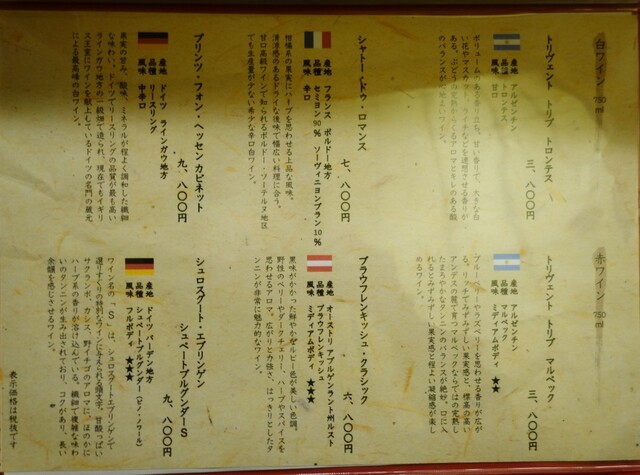 白ワイン 750ml
トリヴェント トリブ トロンテス
三、八〇〇円
産地 アルゼンチン
品種 トロンテス
風味 甘口
シャトー・ドゥ・ロマンス
七、八〇〇円
産地 フランス ボルドー地方
品種 セミヨン90% ソーヴィニヨンブラン10%
風味 辛口
柑橘系の果実にハーブを思わせる上品な風味。
清涼感のあるドライな後味で幅広い料理に合う。
甘口高級ワインで知られるボルドー・ソーテルヌ地区
でも生産量が少ない希少な辛口白ワイン。
プリンツ・フォン・ヘッセン カビネット
九、八〇〇円
産地 ドイツ ラインガウ地方
品種 リースリング
風味 中辛口
果実の甘み、酸味、ミネラルが程よく調和した繊細
な味わい。ドイツでリースリングの品質が最も高い
ラインガウ地方の一級畑で造られ、現在でもイギリ
ス王室にワインを献上しているドイツの名門の蔵元
による最高峰の白ワイン。
赤ワイン 750ml
トリヴェント トリブ マルベック
三、八〇〇円
産地 アルゼンチン
品種 マルベック
風味 ミディアムボディ ★★
ブルーベリーやラズベリーを思わせる香りが広が
る。リッチでみずみずしい果実感と、標高の高い
アンデスの麓で育つマルベックならではの完熟し
たまろやかなタンニンのバランスが絶妙。口に入
れるとみずみずしい果実感と程よい凝縮感が楽し
めるワイン。
ブラウフレンキッシュ・クラシック
六、八〇〇円
産地 オーストリアブルゲンラント州ルスト
品種 ブラウフレンキッシュ
風味 ミディアムボディ ★★★
果味がかった鮮やかなルビー色が美しい色調。
野性のベリーやダークチェリー、ハーブやスパイスを
思わせるアロマ。広がりと力強さ、はっきりとしたタ
ンニンが非常に魅力的なワイン。
シュロスグート・エブリンゲン
シュペートブルグンダーS
九、八〇〇円
産地 ドイツ バーデン地方
品種 シュペートブルグンダー(ピノ・ノワール)
風味 フルボディ ★★★
ワイン名の「S」は、シュロスグート・エブリンゲンで
選りすぐりの特別なワインに与えられる頭文字。甘酸っぱい
サクランボ、カシス、野イチゴのアロマに、ほのかに
ハーブ系の香りが溶け込んでいる。繊細で複雑な味わ
いのタンニンが生み出されており、コクがあり、長い
余韻を感じさせるワイン。
表示価格は税抜です